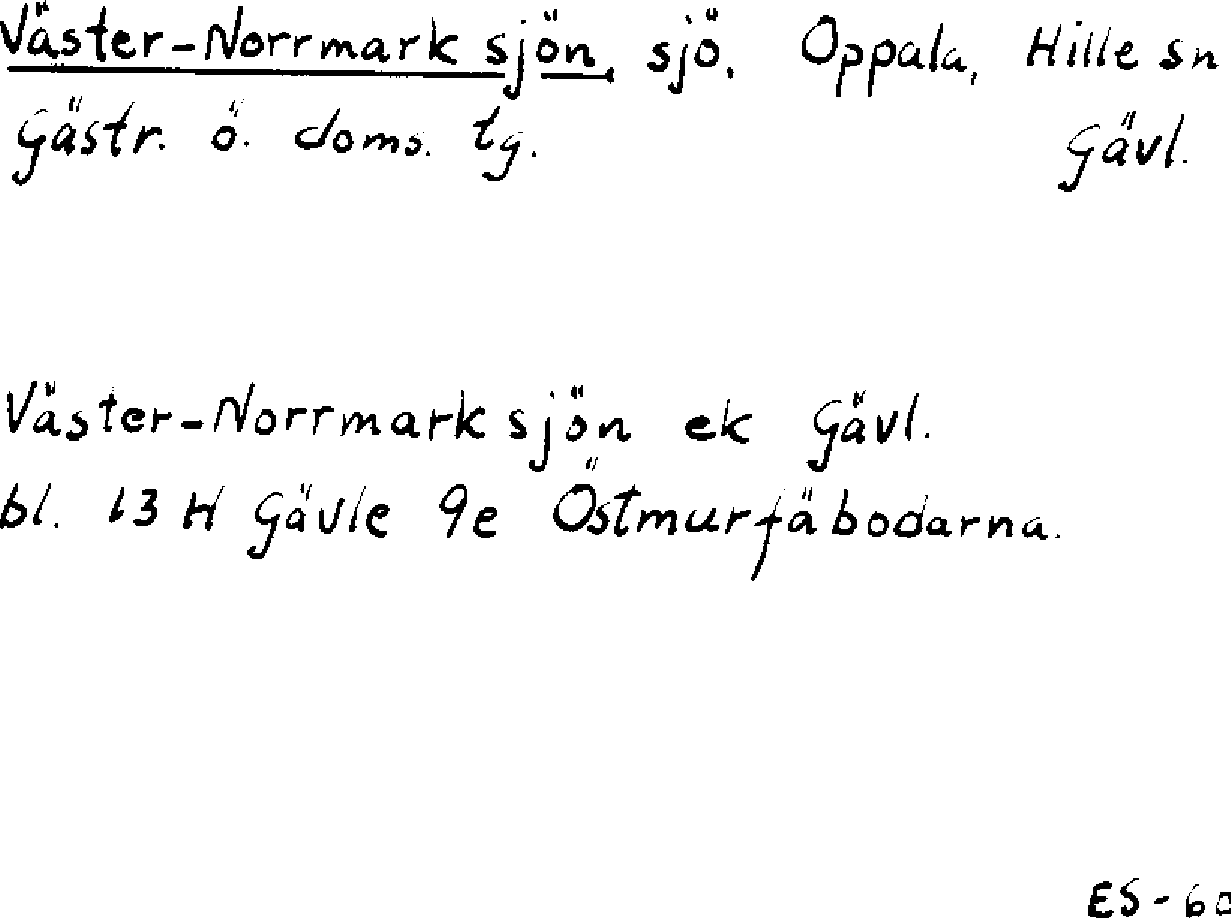 Väster-Norrmarksjön, sjö. Oppala, Hille sn
Gästr. ö. doms. tg. Gävl.
Väster-Norrmarksjön ek Gävl.
bl. 13 H Gävle 9e Östmurfäbodarna.
ES-60